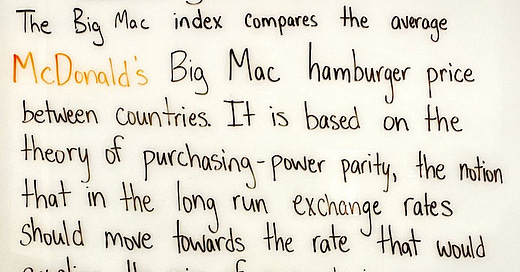 The Big Mac index compares the average
McDonald's Big Mac hamburger price
between countries. It is based on the
theory of purchasing-power parity, the notion
that in the long run exchange rates
should move towards the rate that would